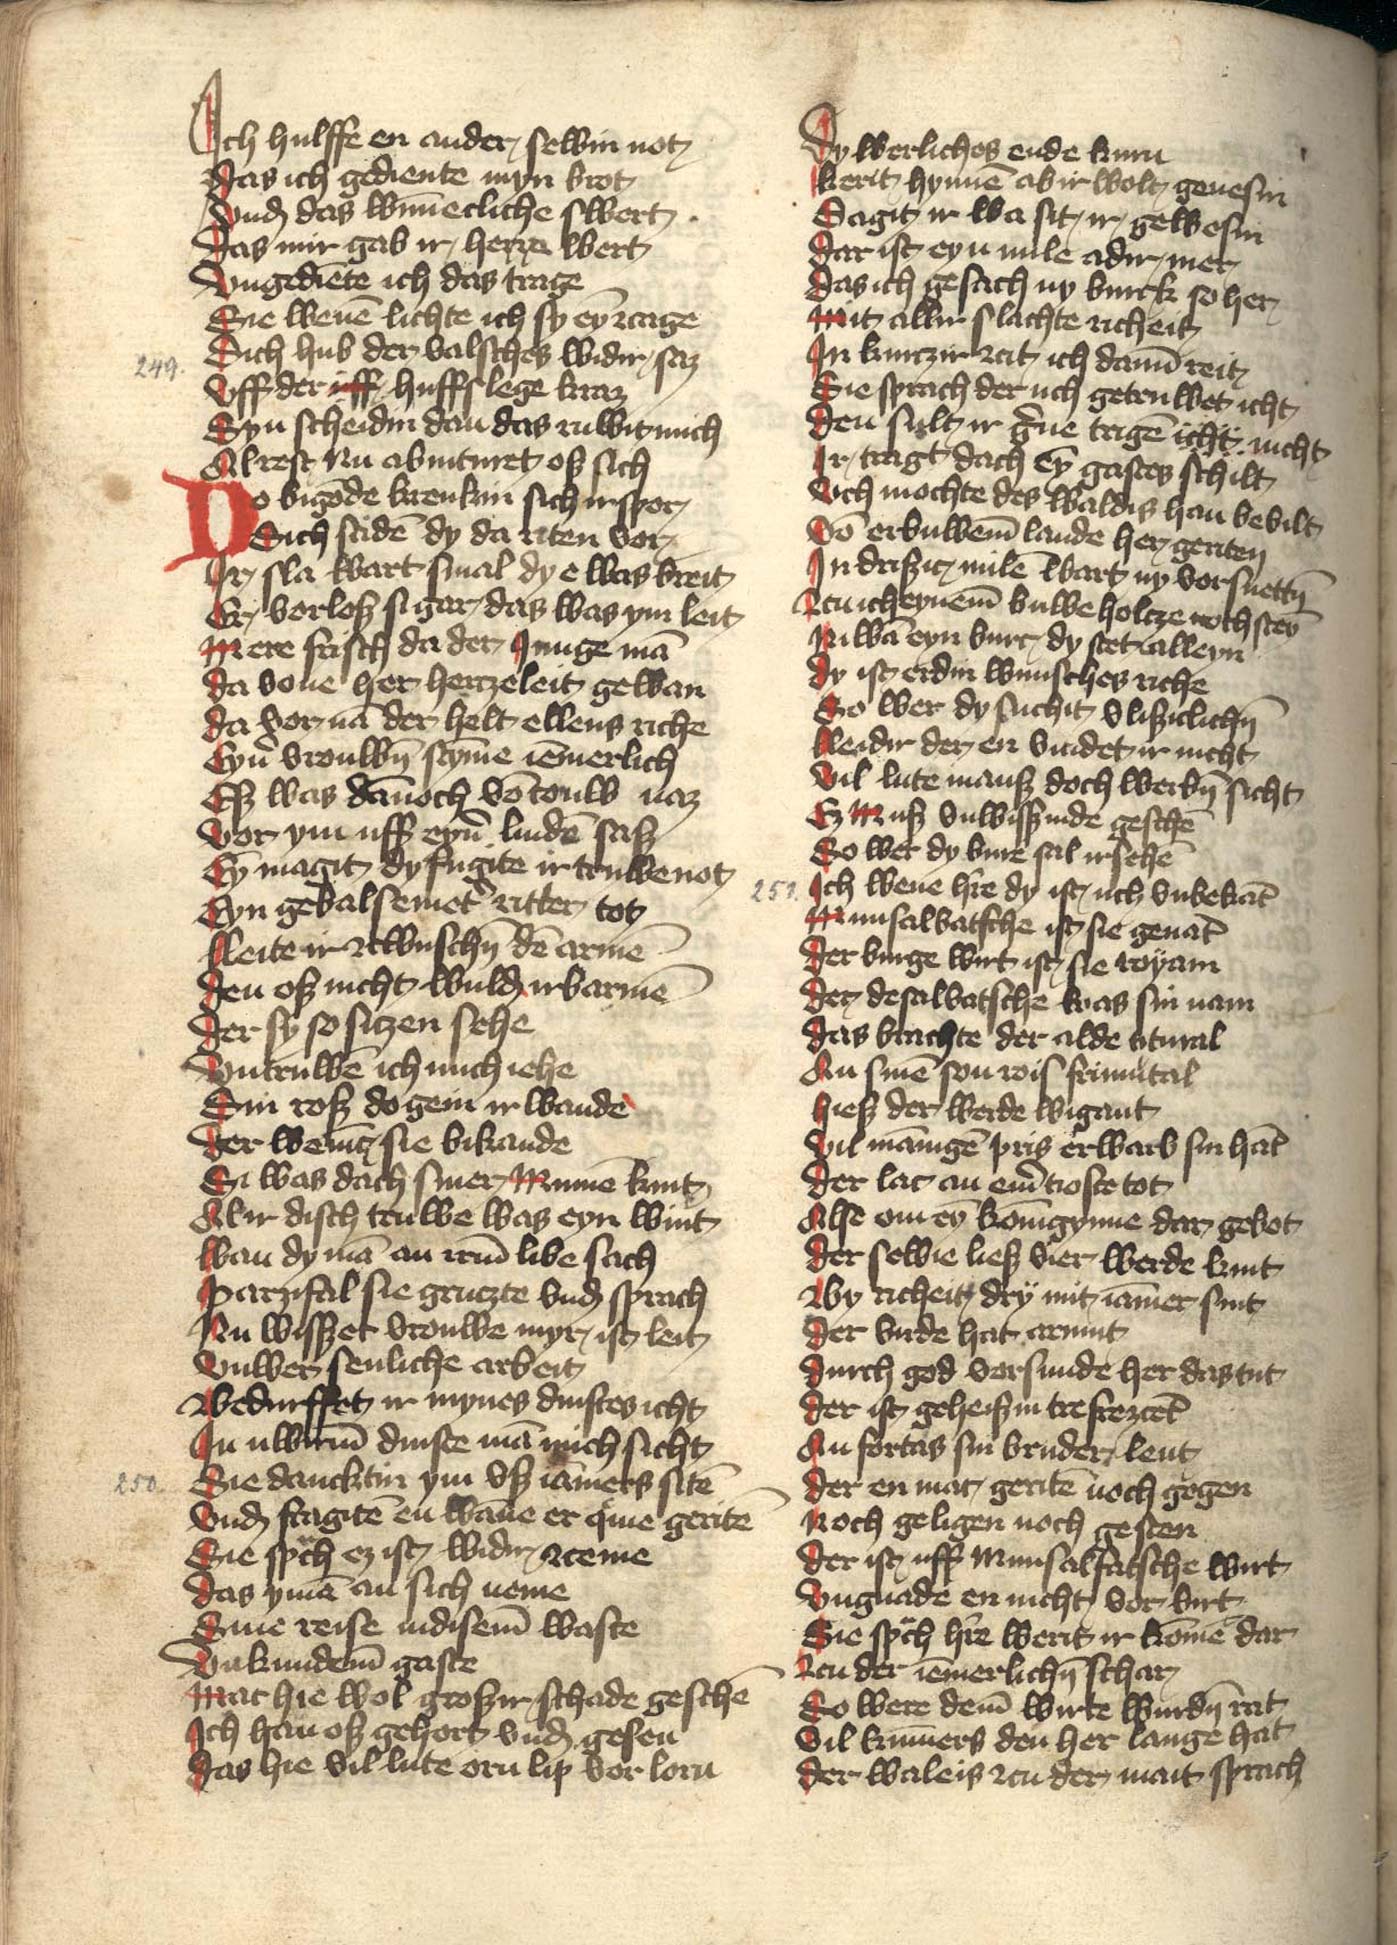 Ich hulffe en ander selbin not
Das ich gediente myn brot
Vnd das wunnecliche swert
Das mir gab ir herre wert
Vngediēte ich das trage
Sie wenē lichte ich sy eȳ zage
249.
Sich hub der valsches widir saz
Vff der uff huffslege kraz
Syn scheidin dan das ruwit mich
Alrest Nu abinturet oß sich
Do bigōde krenkin sich ir spor
Sich scidē dy da riten vor
Ir sla wart smal dy e was breit
Er vorloß si gar das was ym leit
Mere frisch da der Junge mā
da vone her herzeleit gewan
da vor nā der helt ellens riche
Eyn̄ vrouwn̄ stȳme iēmerlich
Eß was dānoch vō touw naz
Vor ym uff eyn̄ lindē saß
Eȳ magit dy fugite ir truwe not
Eyn gebalsemet ritter tot
Leite ir zcwuschn̄ dē armē
Den oß nicht wuld irbarmē
Der sy so sitzen sehe
Vntruwē ich mich iehe
Sin roß do gein ir wande
Der wenic sie bikande
Si was dach siner Mumē kint
Al ir disch truwe was eyn wint
Wan dy mā an irm̄ libe sach
Parzifal sie gruczte vnd sprach
Nu wisset vrouwe myr ist leit
Vnwer senliche arbeit
Bedurffet ir mynes dinstes icht
In uwirm̄ dinste mā mich sicht
250.
Sie dancktin ym vß iāmers sitē
Vnd fragitē en wāne er qme geritē
Sie spch ez ist widir zceme
Das ymā an sich neme
Sine reise in disem̄ waste
Vnkundem̄ gaste
Mac hie wol großir schade geschē
Ich han oß gehort vnd gesen
Das hie vil lute orn lip vor lorn
Dy werliches ende kurn
Kerit hynnē ab ir wolt genesin
Sagit ir wa sit ir gewesin
Dar ist eyn mile adir mer
Das ich gesach ny burck so her
Mit allir slachte richeit
In kurczir zcit ich dann̄ reit
Sie sprach der uch getruwet icht
Den sult ir gne trigē icht nicht
Ir tragt dach eȳ gastes schilt
Vch mochte des waldis han bevilt
Vō erbuwem̄ lande her geriten
In drißic milē wart ny vorsnettn̄
Zcu icheynem̄ buwe holtze noch steȳ
Niwā eyn burc dy stet alleyn
Dy ist erdin wunsches riche
So wer dy suchit vlißiclichn̄
Leidir der en vindet ir nicht
Vil lute manß doch werbn̄ sicht
Ez Muß vnwißinde geschē
So wer dy burc sal irsehē
251.
Ich wene hre dy ist uch vnbekāt
Munsalvatsche ist sie genāt
Der burge wirt ist sie royam
Der desalvatsche was sin nam
Das brachte der alde titural
An sinē son rois frimutal
Hieß der werde wigant
Vil mānigē pris erwarb sin hāt
Der lac an em̄ tioste tot
Alse om eȳ konigynne dar gebot
Der selbe ließ vier werde kint
By richeit dry mit iāmer sint
Der virde hat armut
Durch god vor sunde her das tut
Der ist geheißin trefrezcēt
An fortas sin bruder lent
Der en mac geritē noch gegen
Noch geligen noch gesten
Der ist uff Munsalfatsche wirt
Vngnade en nicht vor birt
Sie spch hre werit ir komē dar
Zcu der iēmerlichn̄ schar
So were dem̄ wirte wurdn̄ rat
Vil kūmers den her lange hat
Der waleis zcu der mait sprach